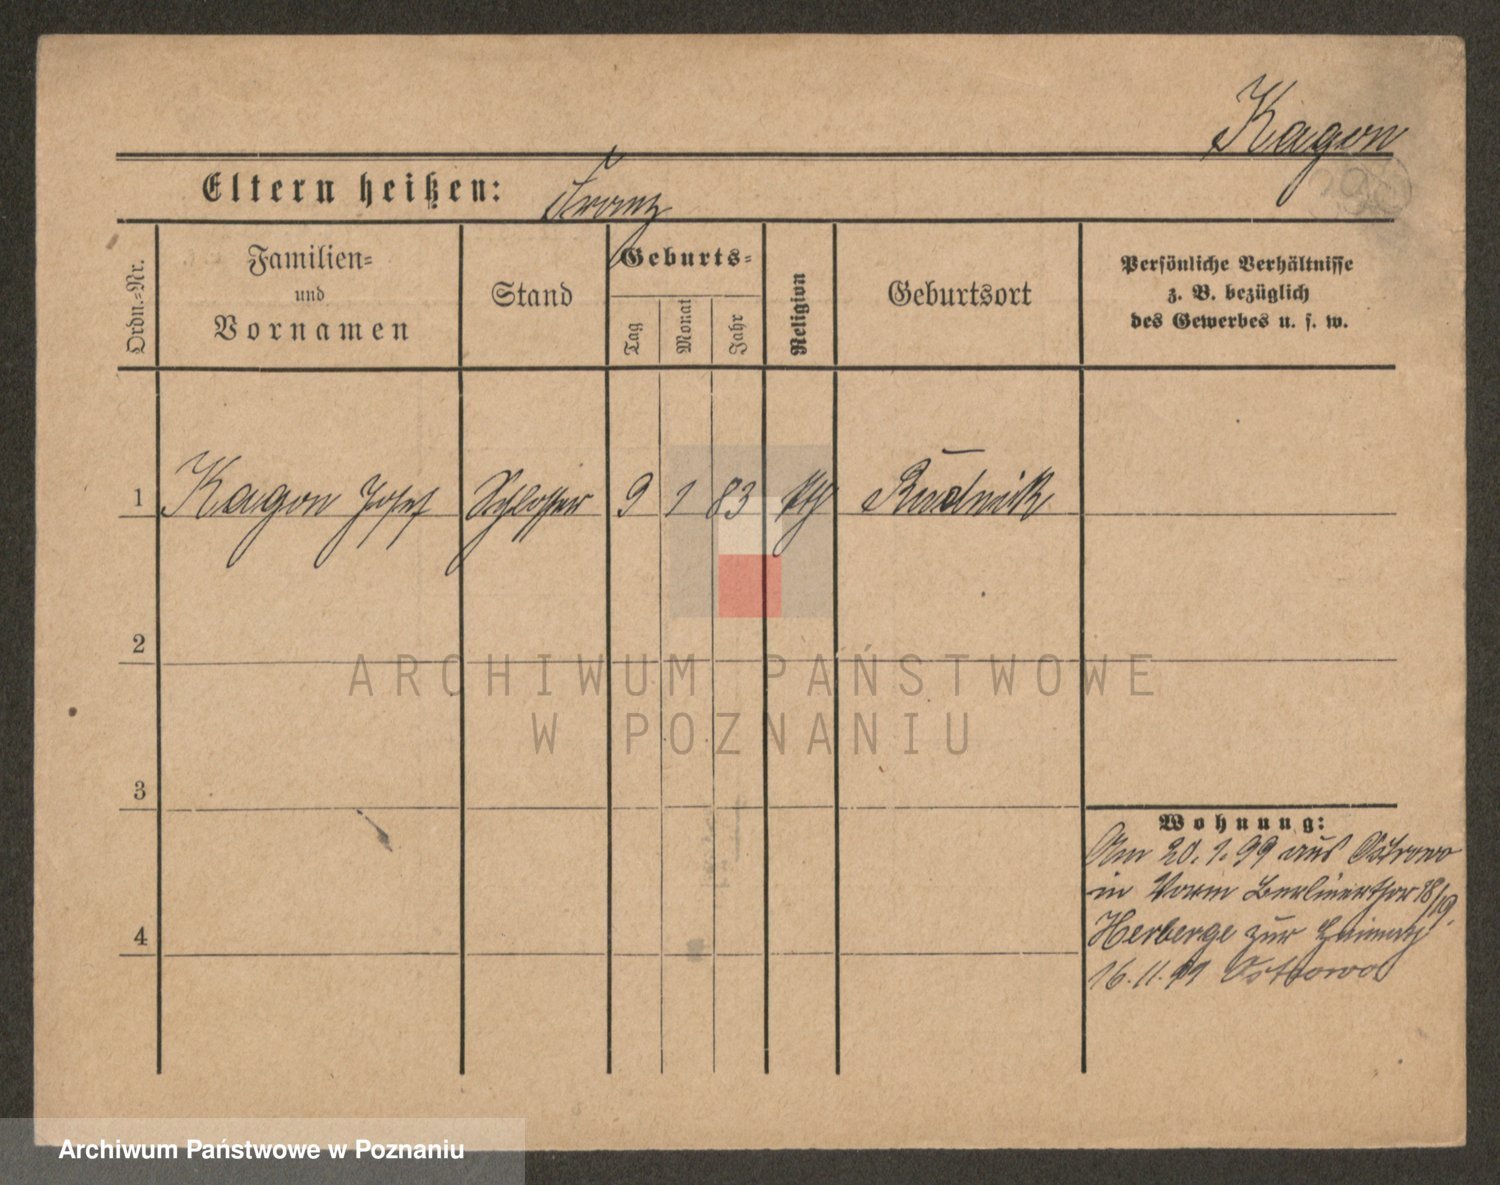 Kagon
Eltern heißen: Franz
Ordn.-Nr.
Familien-
und
Vornamen
Stand
Geburts-
Tag
Monat
Jahr
Religion
Geburtsort
Persönliche Verhältnisse
z. B. bezüglich
des Gewerbes u. s. w.
1 Kagon Josef Schlosser 9 1 83 kth Rudnik
2
ARCHIWUM PAŃSTWOWE
W POZNANIU
3
Wohnung:
Am 20. 1. 99 aus Ostrowo
in Vorm Berlinerthor 18/19.
Herberge zur Heimath
4
16. 11. 99 Ostrowo
Archiwum Państwowe w Poznaniu